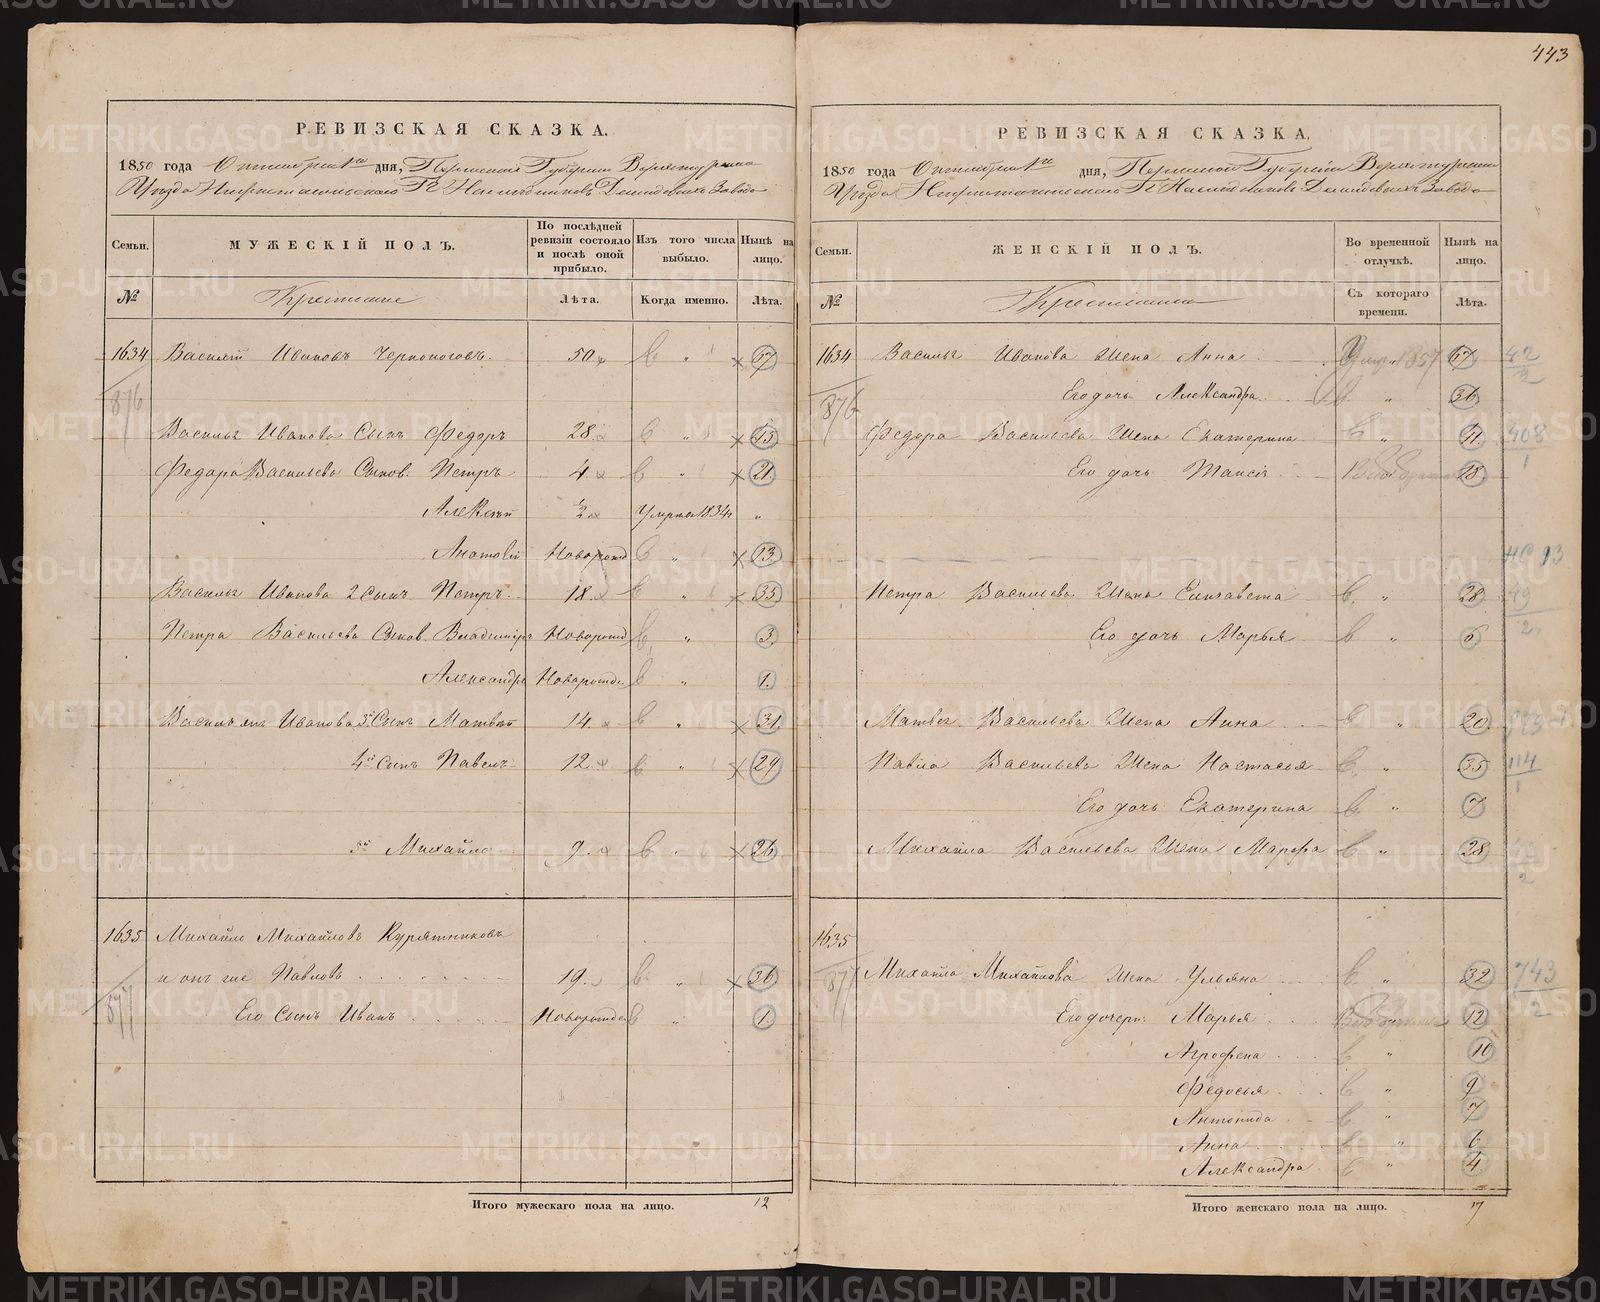 443
РЕВИЗСКАЯ СКАЗКА.
1850 года Октября 1го дня, Пермской Губерніи Верхотурскаго
Уѣзда Нижнетагильскаго Гг. Наслѣдниковъ Демидовыхъ Завода
Семьи. МУЖЕСКІЙ ПОЛЪ. По послѣдней ревизіи состояло и послѣ оной прибыло. Изъ того числа выбыло. Нынѣ на лицо.
№ Крестьяне Лѣта. Когда именно. Лѣта.
1634 Василій Ивановъ Черноноговъ. 50 67
876
Василья Иванова Сынъ Федоръ 28 45
Федора Васильева Сынов. Петръ 4 21
Алексѣй ½ Умре 1834 "
Анатолій Новорожд 13
Василья Иванова 2 Сынъ Петръ 18 35
Петра Васильева Сынов. Владиміръ Новорожд 3
Александръ Новорожд. 1.
Василья Иванова 3й Сынъ Матвѣй 14 31
4й Сынъ Павелъ 12 29
5й Михайло 9 26
1635 Михайло Михайловъ Курятниковъ
и онъ же Павловъ 19 36
877
Его Сынъ Иванъ Новорожд 1
Итого мужескаго пола на лицо. 12
РЕВИЗСКАЯ СКАЗКА.
1850 года Октября 1го дня, Пермской Губерніи Верхотурскаго
Уѣзда Нижнетагильскаго Гг. Наслѣдниковъ Демидовыхъ Завода
Семьи. ЖЕНСКІЙ ПОЛЪ. Во временной отлучкѣ. Нынѣ на лицо.
№ Крестьянки Съ котораго времени. Лѣта.
1634 Василья Иванова Жена Анна 1857 67 42
876 Его дочь Александра 36
Федора Васильева Жена Екатерина " 41 408
Его дочь Таисія 18 1
13
Петра Васильева Жена Елизавета " 28 49
Его дочь Марья " 6 2
Матвѣя Васильева Жена Анна " 20
Павла Васильева Жена Настасья " 35 114
Его дочь Екатерина " 7 1
Михайла Васильева Жена Марфа " 28
2
1635
877 Михайла Михайлова Жена Ульяна " 32 743
Его дочери: Марья 12 2
Агрофена " 10
Федосья " 9
Антонида " 7
Анна " 6
Александра " 4
Итого женскаго пола на лицо. 17
METRIKI.GASO-URAL.RU